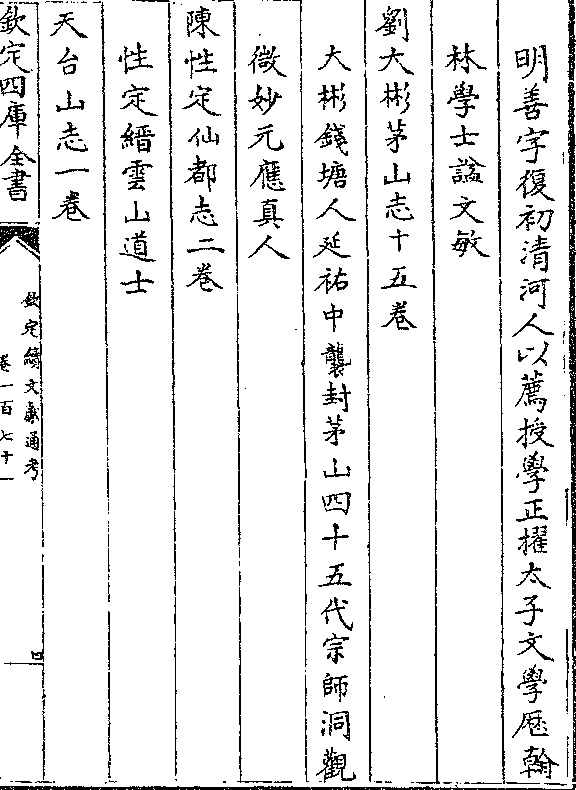 明善字復初清河人以薦授學正擢太子文學厯翰
林學士諡文敏
劉大彬茅山志十五卷
大彬錢塘人延祐中襲封茅山四十五代宗師洞觀
微妙元應真人
陳性定仙都志二卷
性定縉雲山道士
天台山志一卷
欽定四庫全書
欽定續文獻通考
卷一百七十一
四